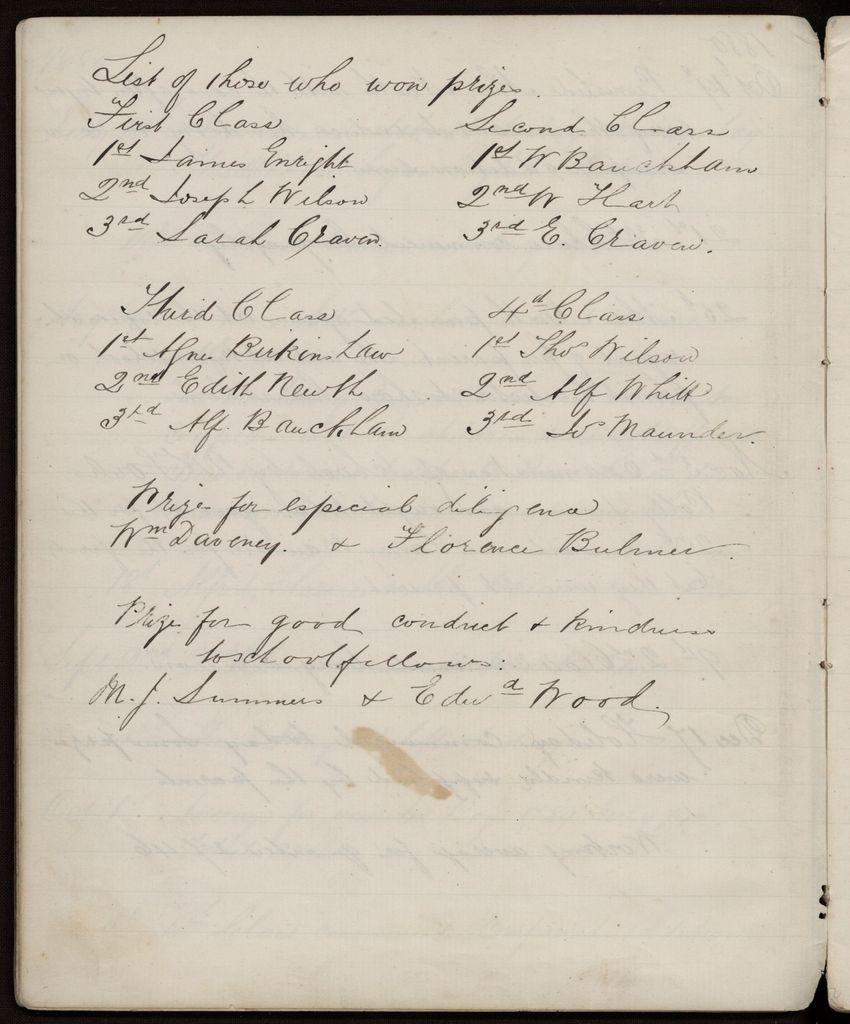 List of those who won prizes.
First Class
1st James Enright
2nd Joseph Wilson
3rd Sarah Craven.
Second Class
1st W Bauckham
2nd W Hart
3rd E. Craven.
Third Class
1st Agnes Birkinshaw
2nd Edith Newth
3rd Alf. Bauckham
4d Class
1st Thos Wilson
2nd Alf Whitt
3rd Js Maunder.
Prize for especial diligence
Wm Daveney. & Florence Bulmer.
Prize for good conduct & kindness
to schoolfellows:
M. J. Summers & Edwd Wood.